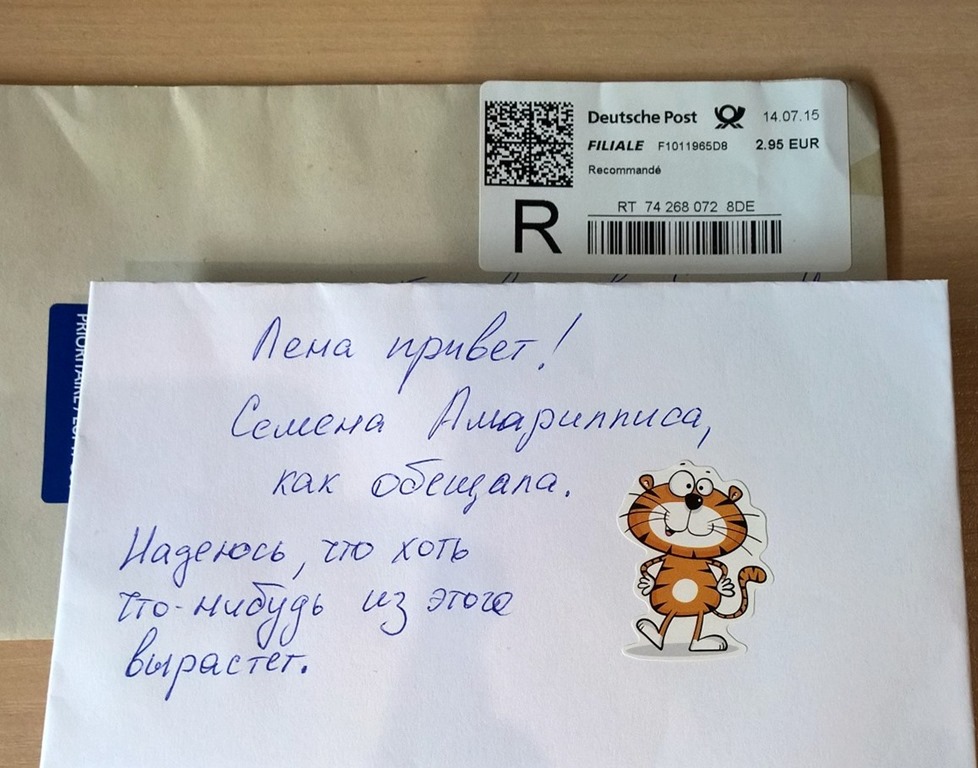 Deutsche Post 14.07.15
FILIALE F1011965D8 2.95 EUR
Recommandé
R
RT 74 268 072 8DE
PRIORITAIRE
Лена привет!
Семена Амариллиса,
как обещала.
Надеюсь, что хоть
что-нибудь из этого
вырастет.